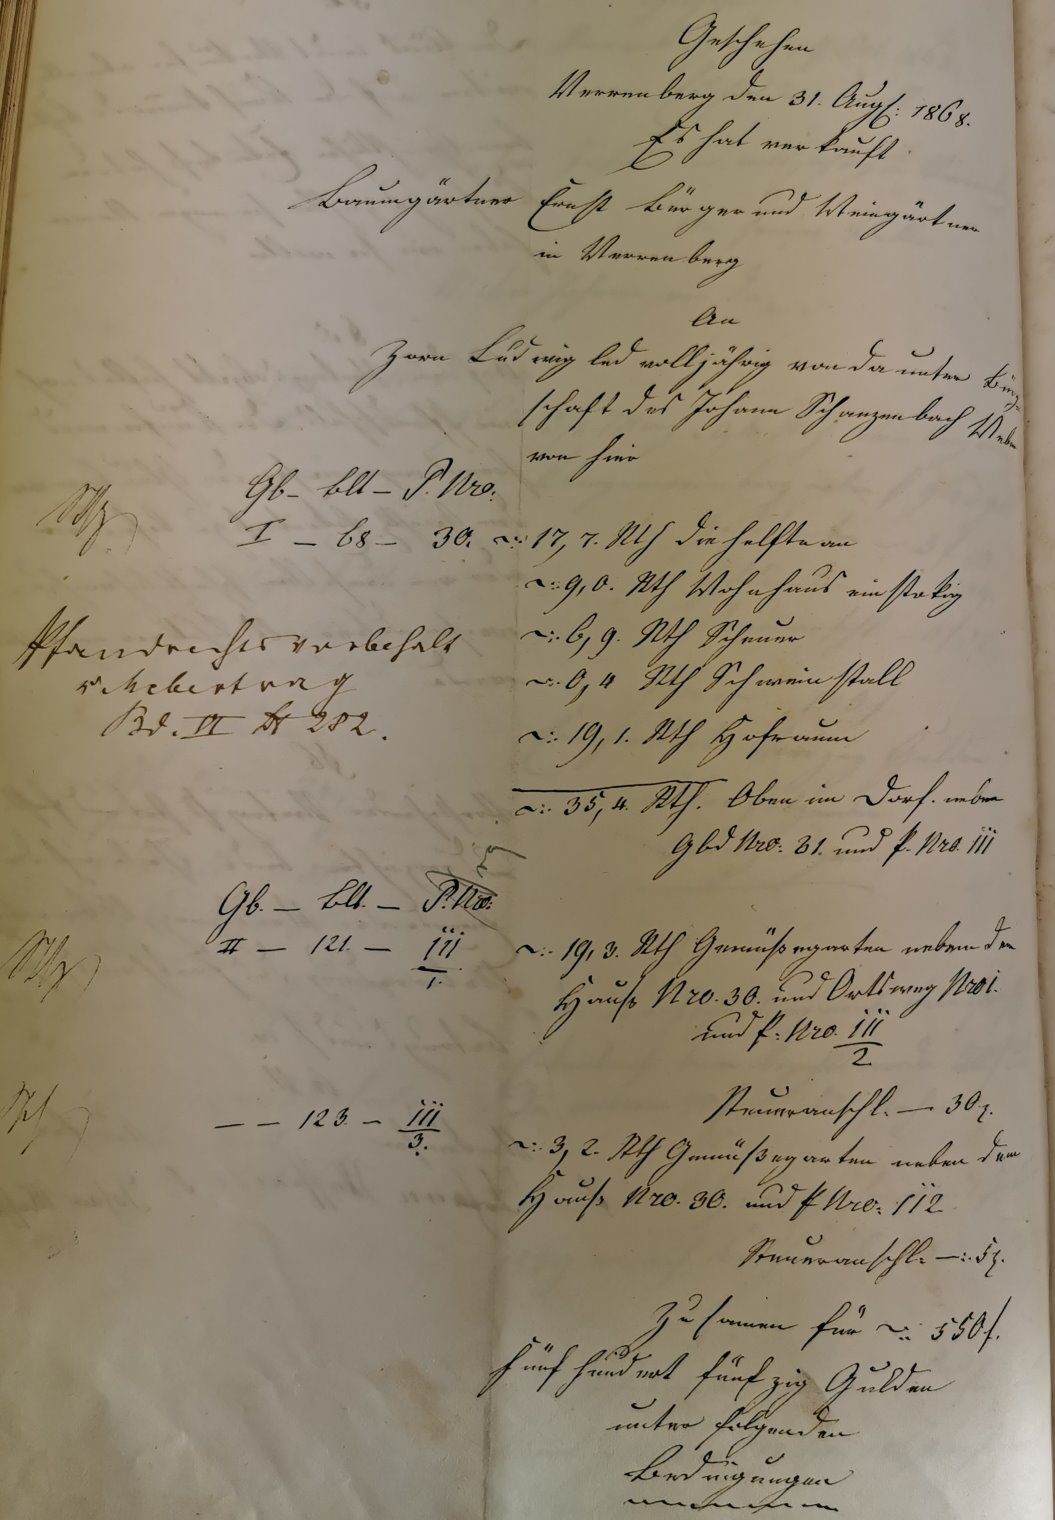 Geschehen
Verrenberg den 31. Augs: 1868.
Es hat verkauft
Baumgärtner Ernst Bürger und Weingärtner
in Verrenberg
An
Zorn Ludwig led volljährig von da unter Bürg-
schaft des Johann Schanzenbach Weber
von hier
Gb- Blt- P. Nro:
I - 68 - 30. ~: 17,7. Rth die helfte an
~: 9,0. Rth Wohnhaus einstokig
Pfandrechtsvorbehalt
~: 6,9. Rth Scheuer
Uebertrag
~: 0,4 Rth Schweinstall
Bd. VI Bl 282.
~: 19,1. Rth Hofraum
~: 35,4. Rth. Oben im Dorf. neben
Gbd Nro: 31. und P. Nro. 111
Gb. - Blt. - P. Nro:
II - 121. - 111/1. ~: 19,3. Rth Gemüßegarten neben dem
Hauß Nro. 30. und Ortsweg Nro 1.
und P: Nro. 111/2
Steueranschl. - 30 x.
- - 123. - 111/3. ~: 3,2. Rth Gemüßegarten neben dem
Hauß Nro. 30. und P Nro: 112
Steueranschl: -: 5 x.
Zusamen für ~: 550 f.
Fünfhundert fünfzig Gulden
unter folgenden
Bedingungen